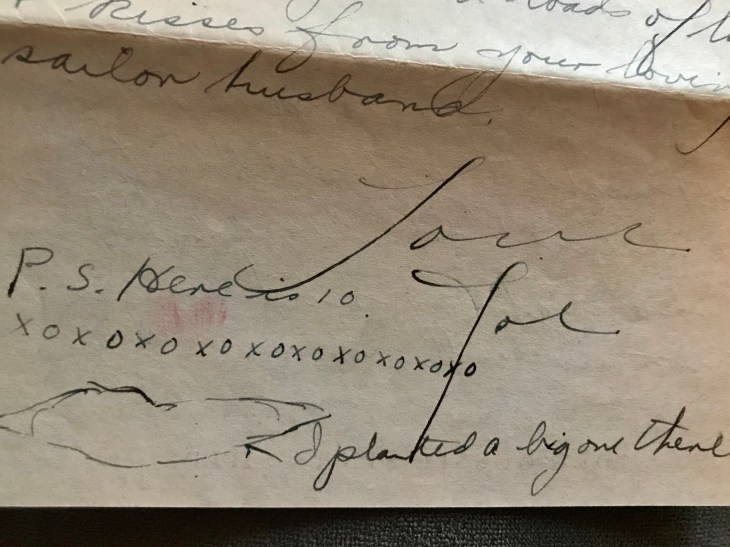 loads of
kisses from your lovin
sailor husband.
Love
Joe
P.S. Here is 10
xoxoxoxoxoxoxoxoxoxo
I planted a big one there